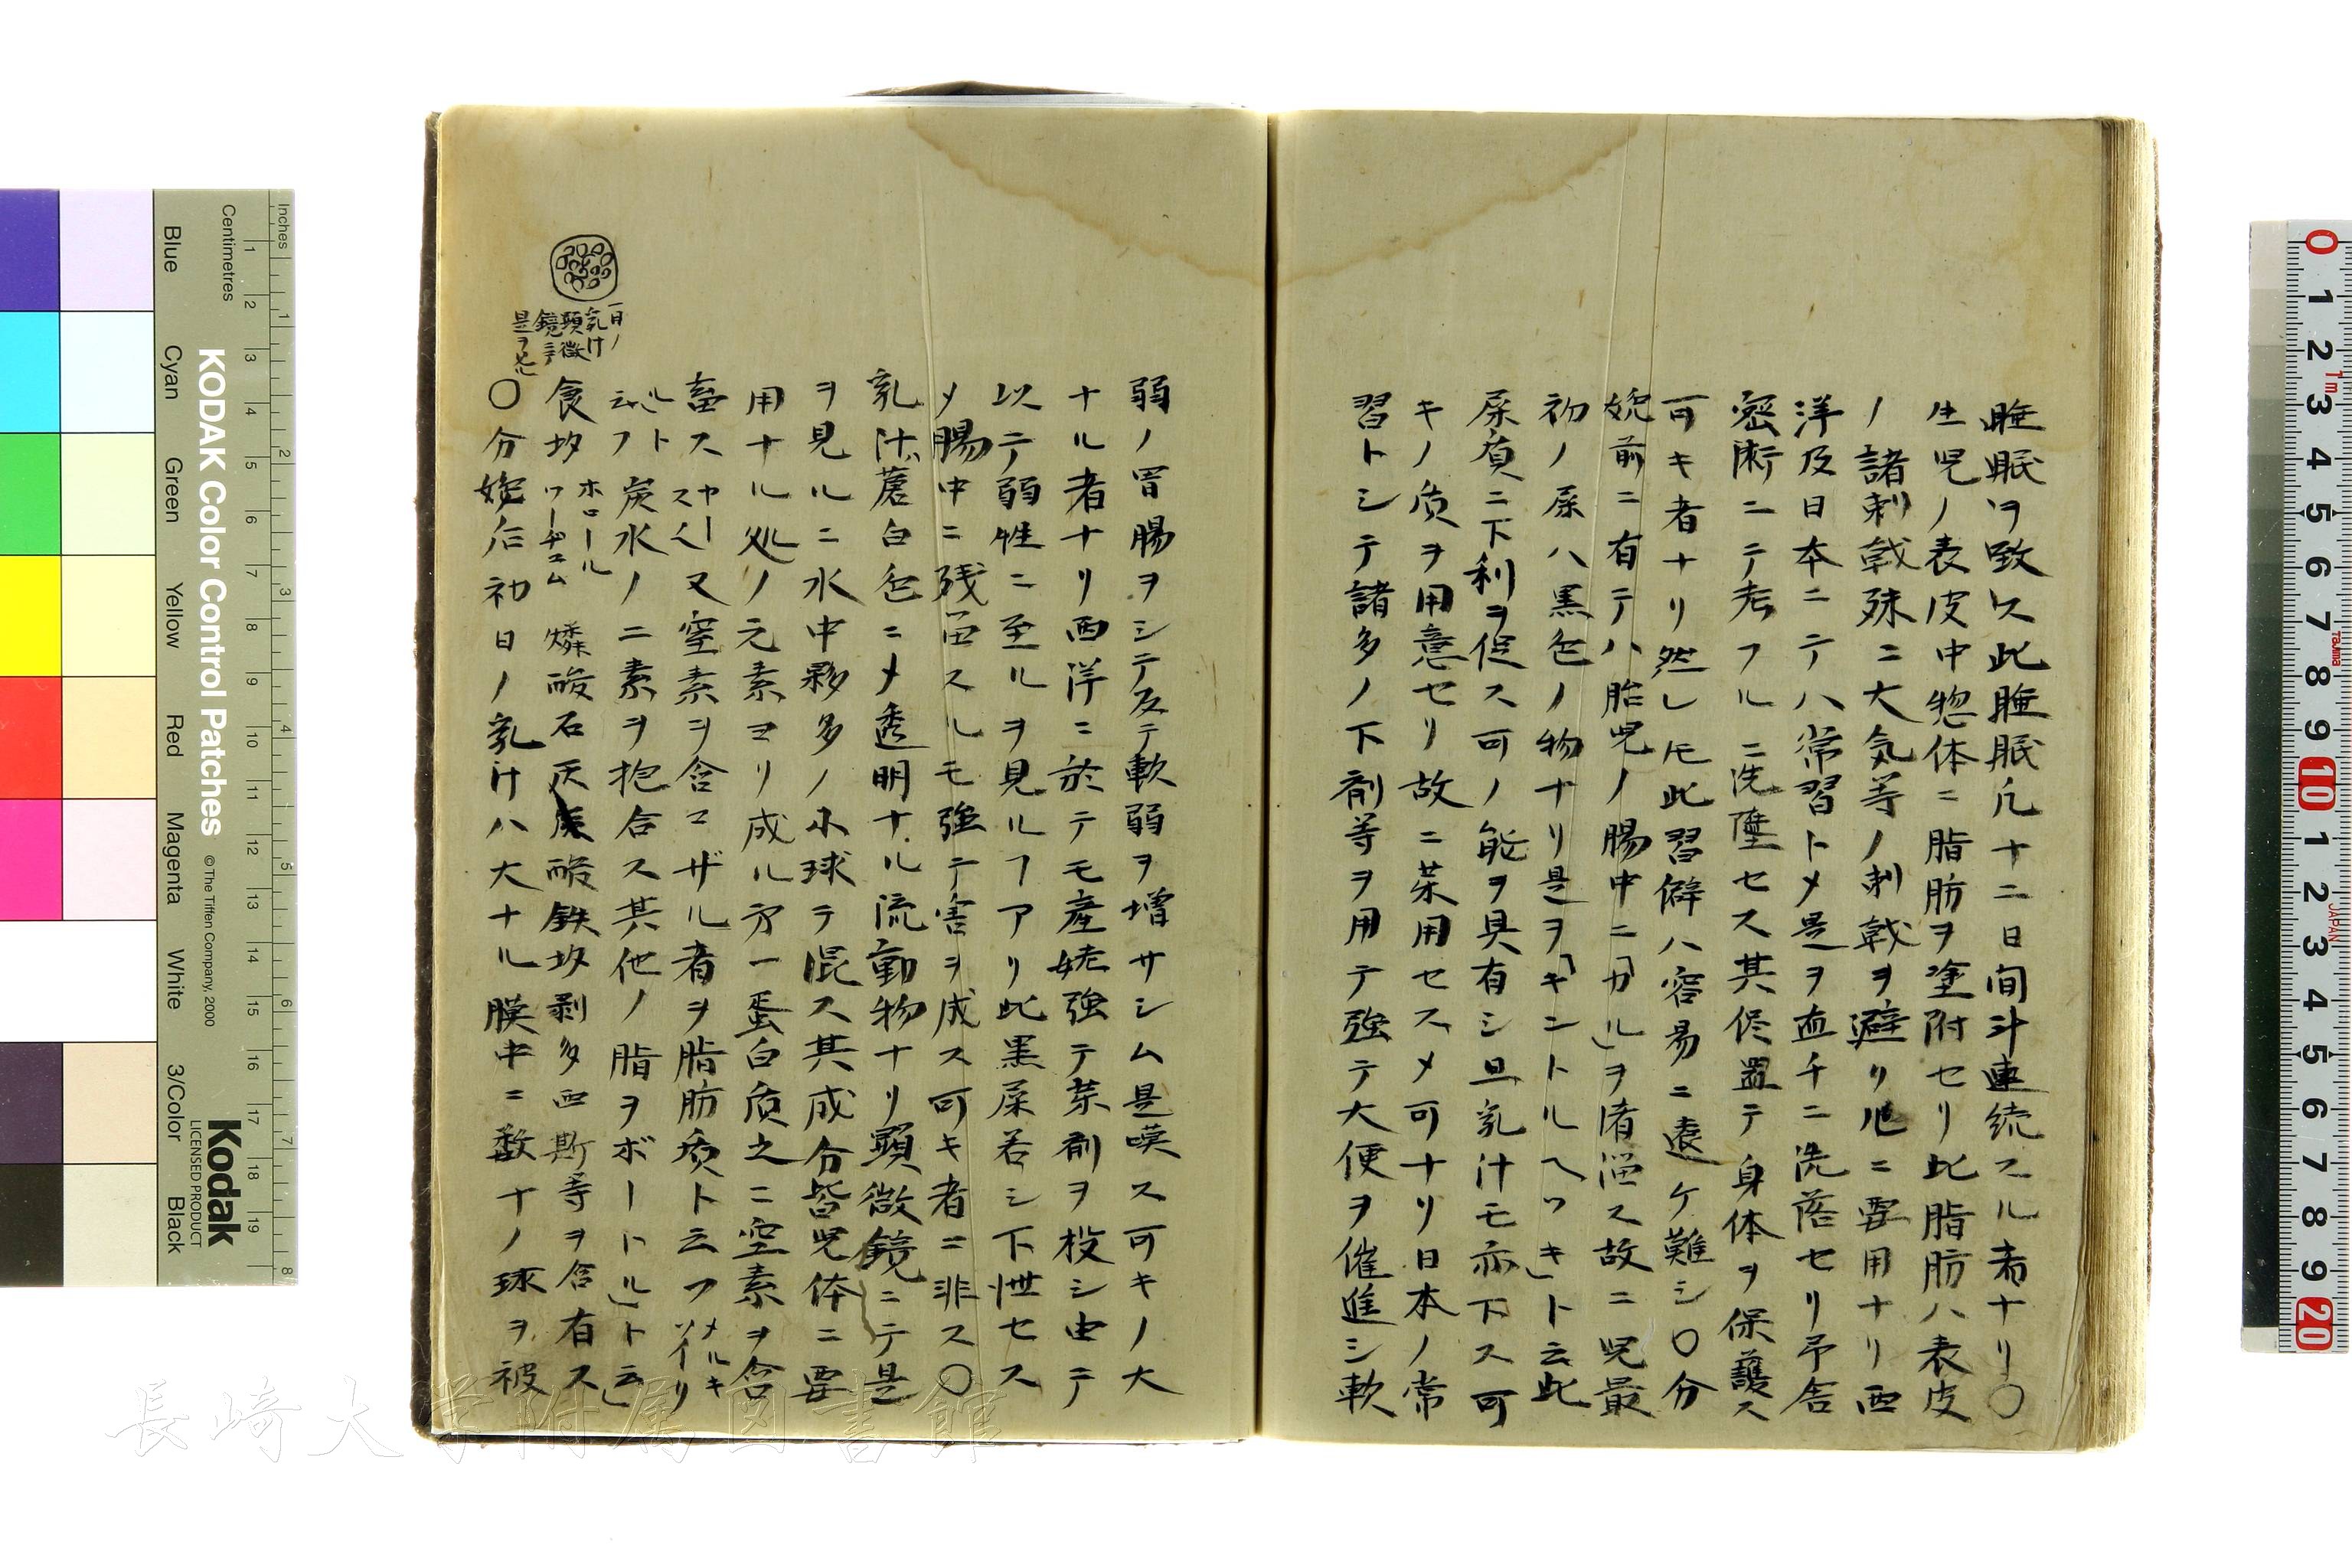 睡眠ヲ致ス此睡眠凡十二日間斗連続スル者ナリ〇
生児ノ表皮中惣体ニ脂肪ヲ塗附セリ此脂肪ハ表皮
ノ諸刺戟殊ニ大気等ノ刺戟ヲ避リ
ニ要用ナリ西
洋及日本ニテハ常習トメ是ヲ直チニ洗落セリ予舎
密術ニテ考フルニ洗
セス其侭置テ身体ヲ保護ス
可キ者ナリ然シ𪜈此習癖ハ容易ニ遠ケ難シ〇分
娩前ニ有テハ胎児ノ腸中ニ「カル」ヲ瀦溜ス故ニ児最
初ノ屎ハ黒色ノ物ナリ是ヲ「キントルヘッキ」ト云此
屎質ニ下利ヲ促ス可ノ能ヲ具有シ且乳汁モ亦下ス可
キノ质ヲ用意セリ故ニ薬用セスメ可ナリ日本ノ常
習トシテ諸多ノ下剤等ヲ用テ強テ大便ヲ催進シ軟
弱ノ胃腸ヲシテ反テ軟弱ヲ増サシム是嘆ス可キノ大
ナル者ナリ西洋ニ於テモ産姥強テ薬剤ヲ投シ由テ
以テ弱性ニ至ルヲ見ルヿアリ此黒屎若シ下泄セス
メ腸中ニ残畱スルモ強テ害ヲ成ス可キ者ニ非ス〇
乳汁蒼白色ニメ透明ナル流動物ナリ顕微鏡ニテ是
ヲ見ルニ水中夥多ノ小球テ混ス其成分皆児体ニ要
用ナル処ノ元素ヨリ成ル第一蛋白质之ニ空素ヲ含
畜ス
ヤー
スく
又窒素ヲ含マザル者ヲ脂肪质ト云フ
メルキ
ソイリ
ルト
云フ炭水ノ二素ヲ抱合ス其他ノ脂ヲボートル」ト云
食塩
ホロール
ワーテェム
燐酸石灰
酸鉄塩剥多亜斯等ヲ含有ス
〇分娩后初日ノ乳汁ハ大ナル膜中ニ数十ノ球ヲ被
一日ノ
乳汁
顕微
鏡ニテ
是ヲ
Inches
Centimetres
KODAK Color Control Patches
© The Tiffen Company, 2000
Kodak
LICENSED PRODUCT
Blue
Cyan
Green
Yellow
Red
Magenta
White
3/Color
Black
1 2 3 4 5 6 7 8 9 10 11 12 13 14 15 16 17 18 19
1 2 3 4 5 6 7 8
0 1 2 3 4 5 6 7 8 9 10 1 2 3 4 5 6 7 8 9 20
1m
Tajima
JAPAN
長崎大学附属図書館